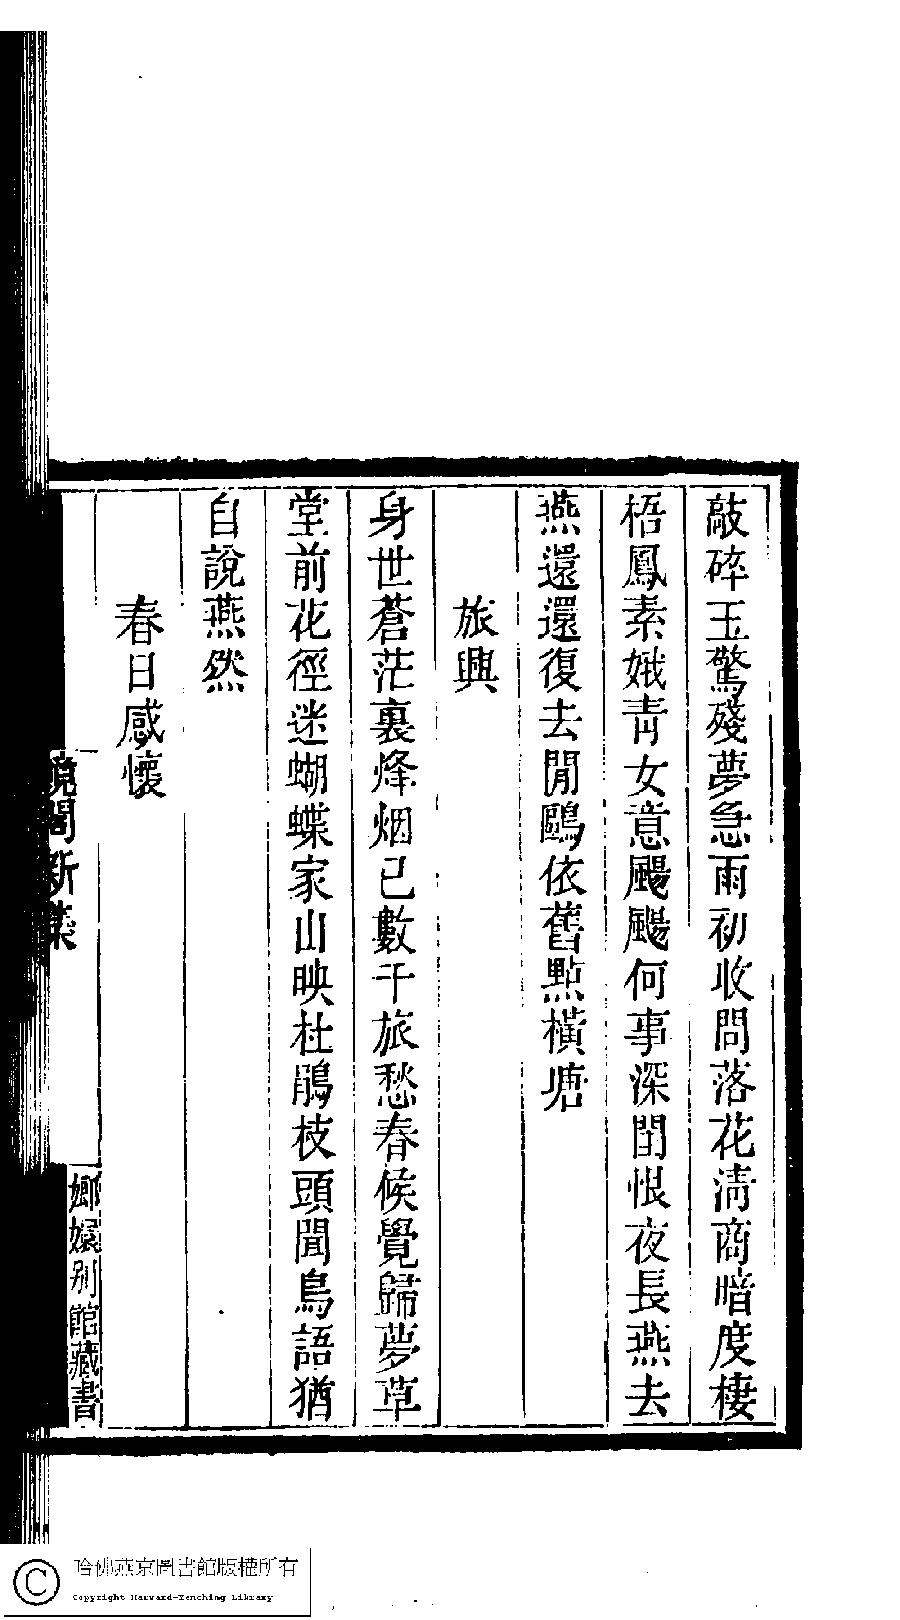 敲碎玉驚殘夢急雨初收問落花清商暗度棲
梧鳳素娥靑女意颺颺何事深閨恨夜長燕去
燕還還復去閒鷗依舊點橫塘
旅興
身世蒼茫裏烽烟已數千旅愁春候覺歸夢草
堂前花徑迷蝴蝶家山映杜鵑枝頭聞鳥語猶
自說燕然
春日感懷
曉閣新集
嫏嬛別館藏書
哈佛燕京圖書館版權所有
Copyright Harvard-Yenching Library